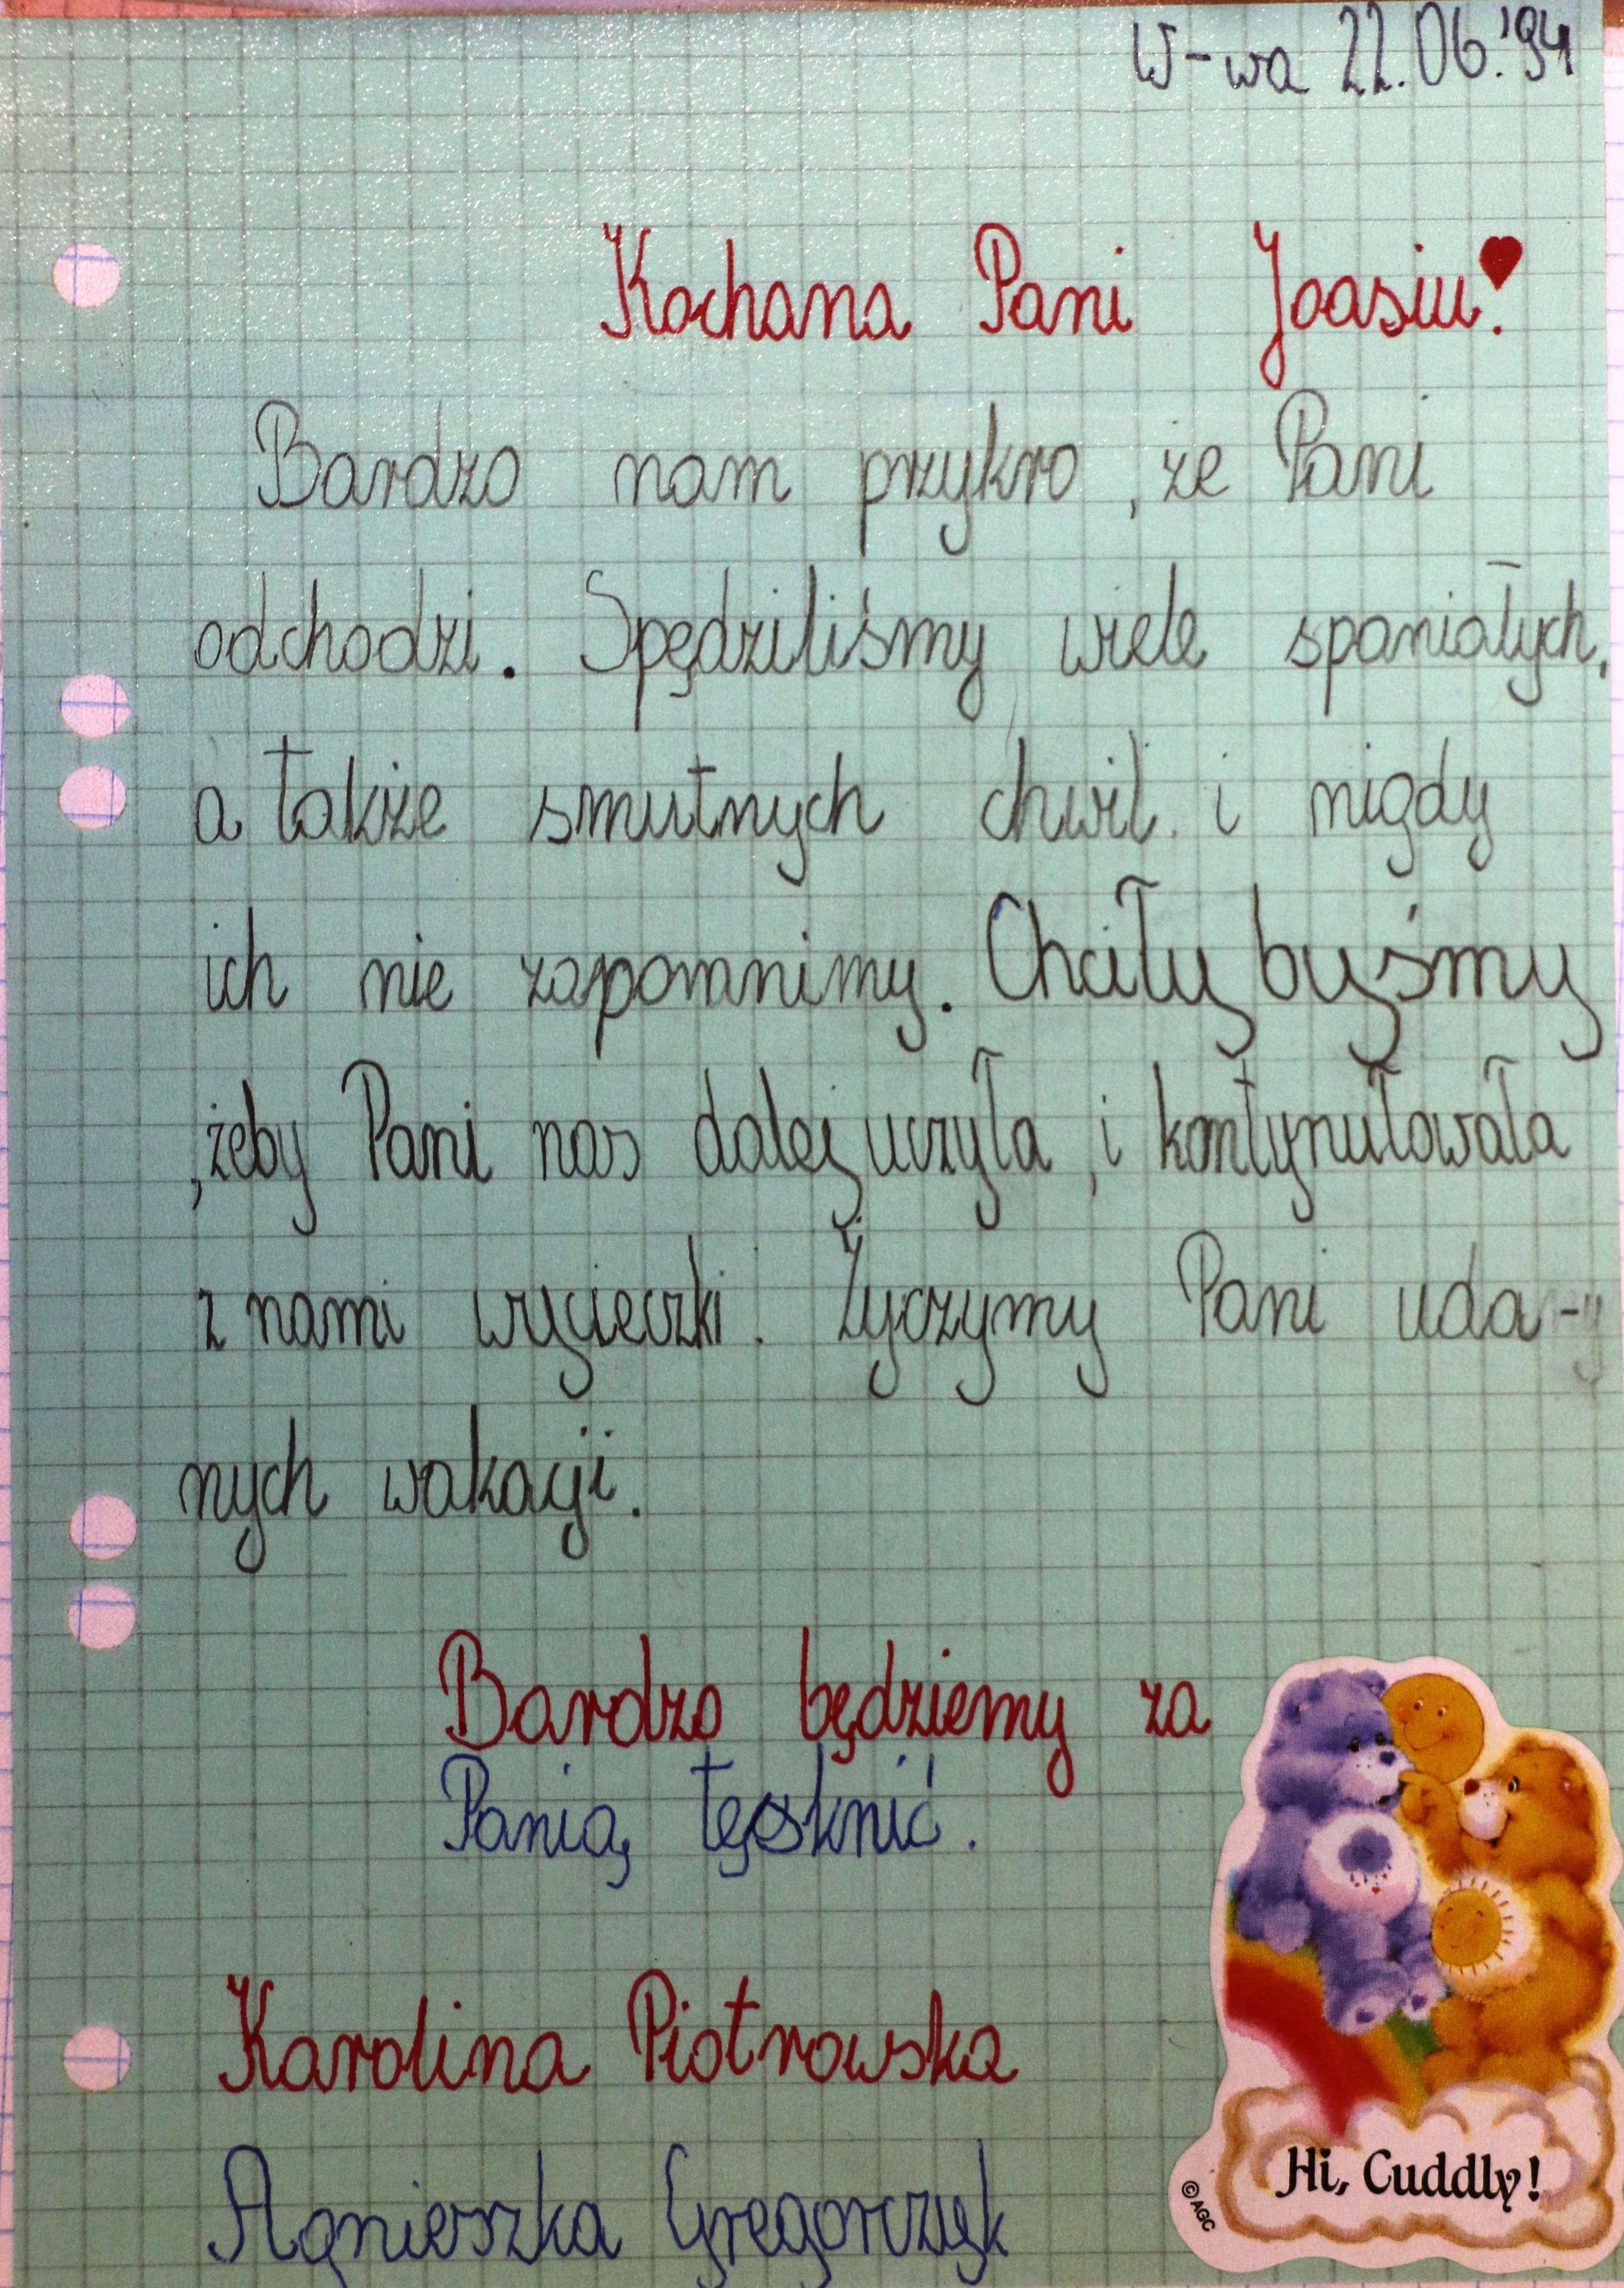 W-wa 22.06.'94
Kochana Pani Joasiu!
Bardzo nam przykro, że Pani
odchodzi. Spędziliśmy wiele spaniałych,
a także smutnych chwil i nigdy
ich nie zapomnimy. Chciały byśmy
,żeby Pani nas dalej uczyła, i kontynułowała
z nami wycieczki. Życzymy Pani uda-
nych wakacji.
Bardzo będziemy za
Panią tęsknić.
Karolina Piotrowska
Agnieszka Gregorczyk
Hi, Cuddly!
©AGC